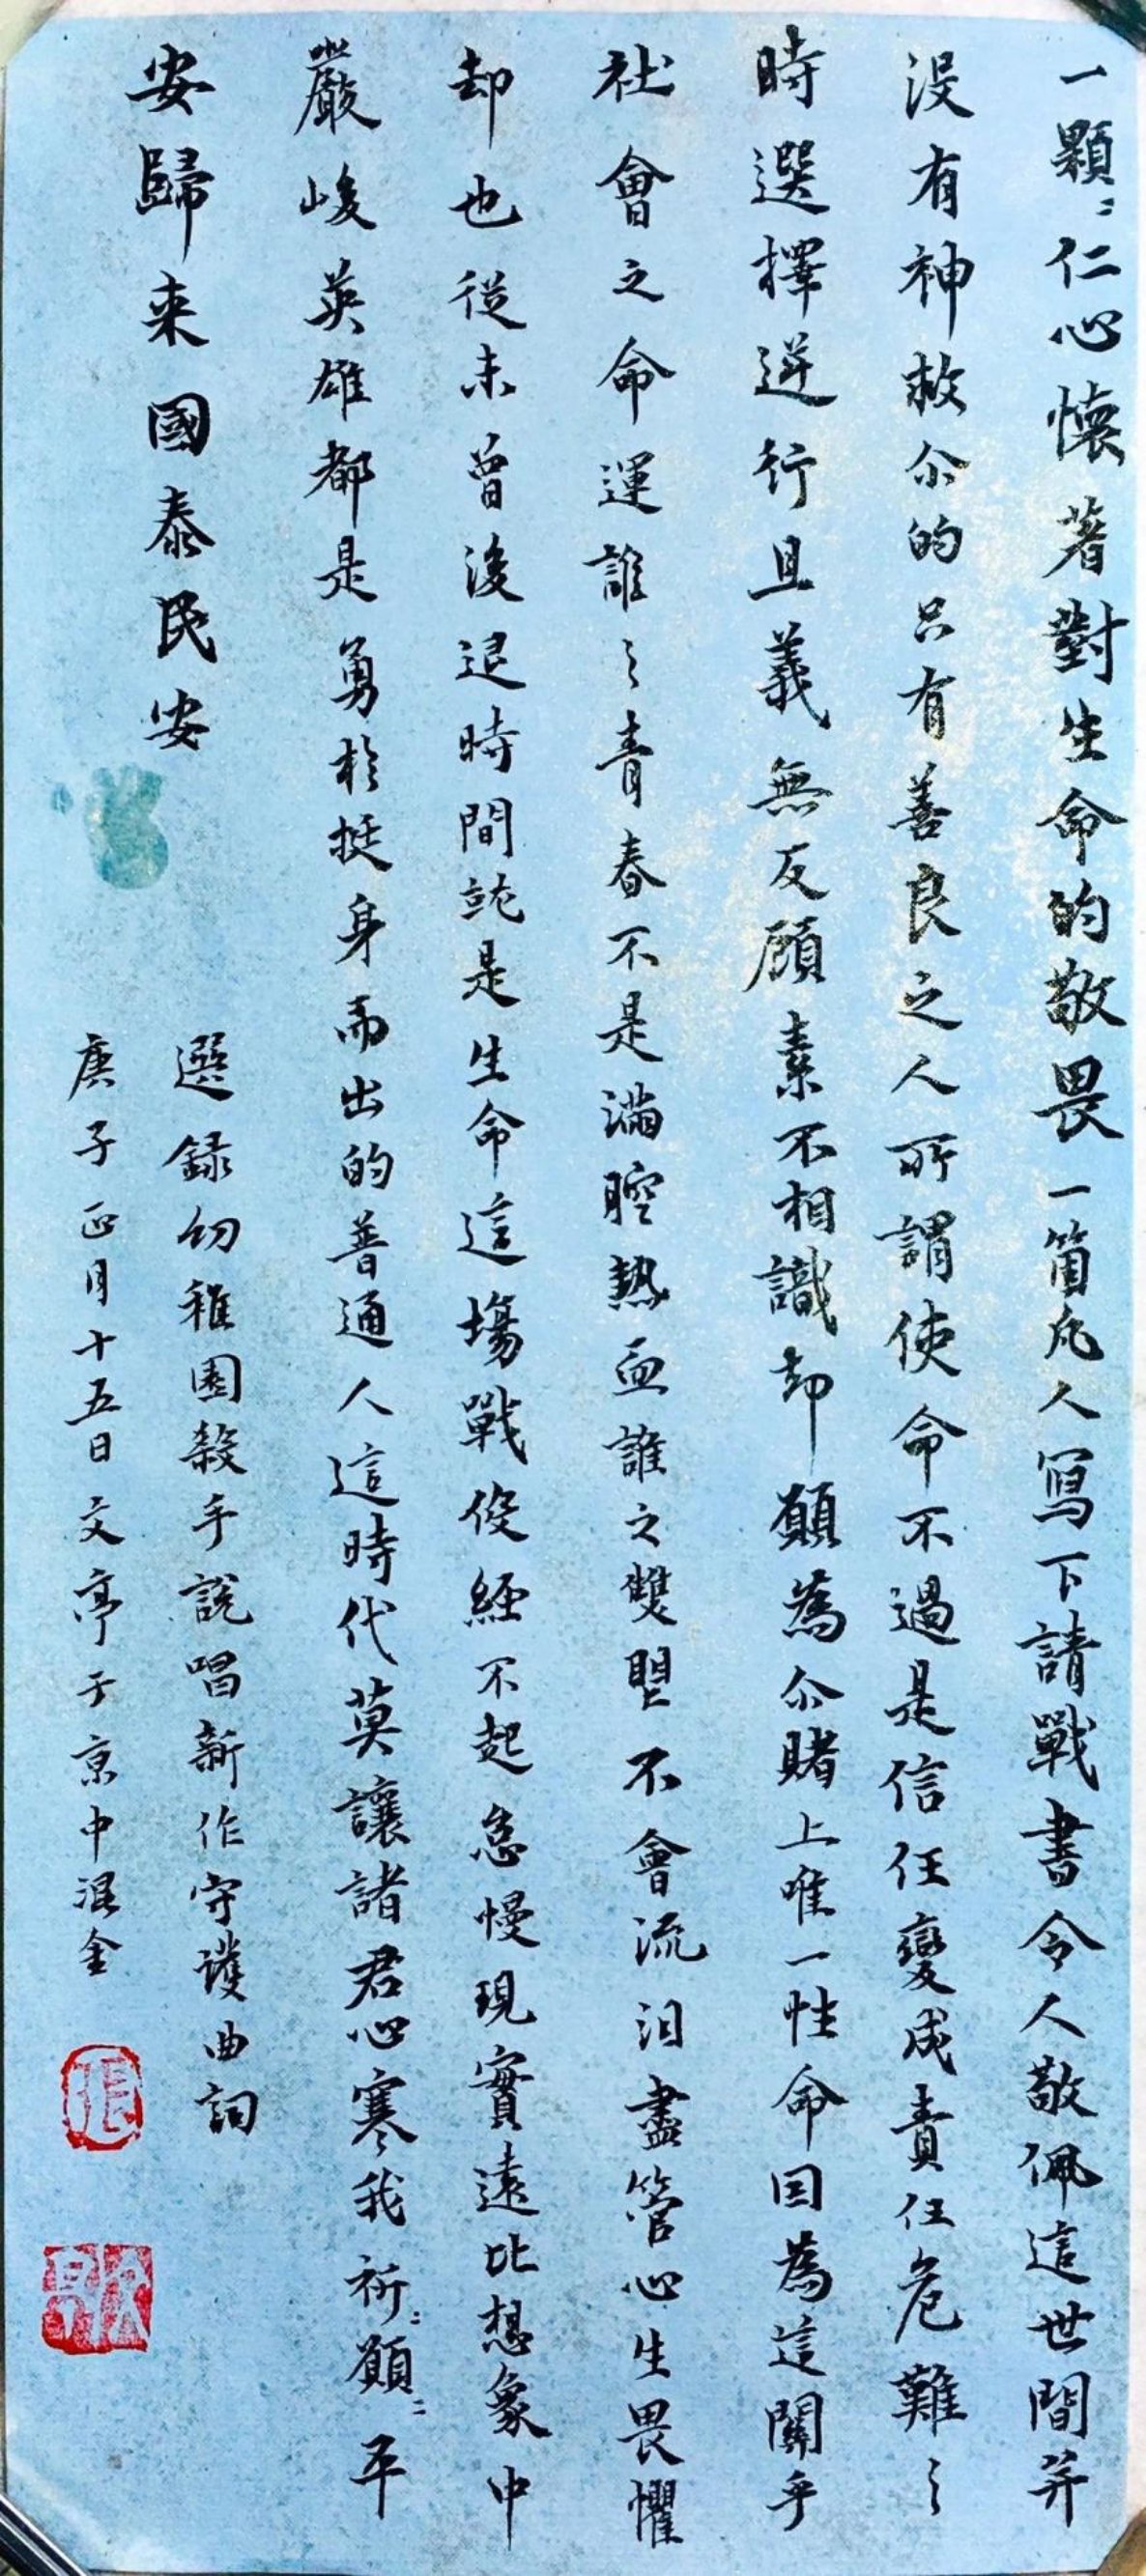 一顆〻仁心懷著對生命的敬畏一箇凡人寫下請戰書令人敬佩這世間并
没有神救尒的只有善良之人所謂使命不過是信任變成責任危難之
時選擇逆行且義無反顧素不相識却願為尒賭上唯一性命因為這關乎
社會之命運誰之青春不是滿腔熱血誰之雙眼不會流泪盡管心生畏懼
却也從未曾後退時間就是生命這場戰役經不起怠慢現實遠比想象中
嚴峻英雄都是勇於挺身而出的普通人這時代莫讓諸君心寒我祈〻願〻平
安歸来國泰民安
選録幼稚園殺手說唱新作守護曲詞
庚子正月十五日文亭于京中
張